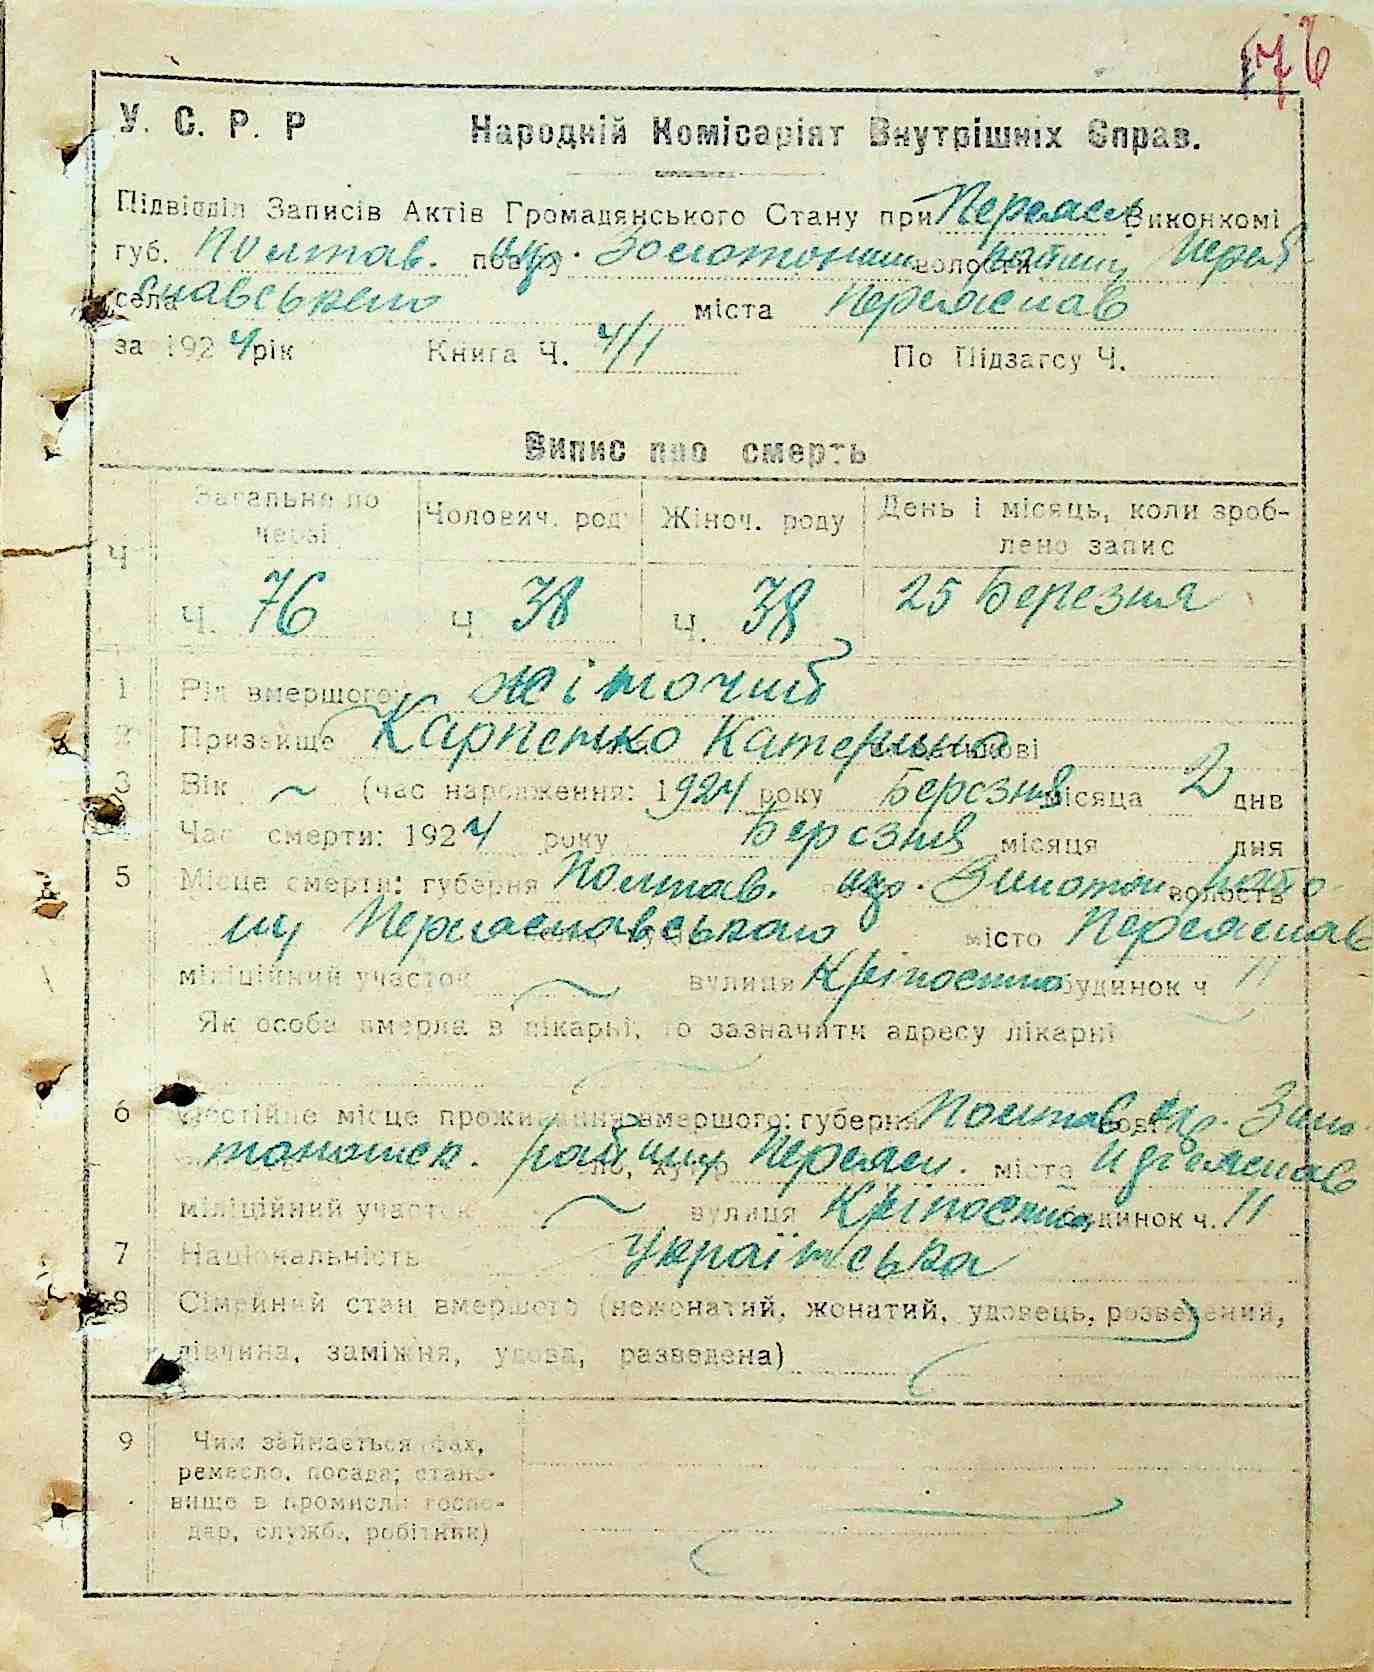 176
У. С. Р. Р Народній Комісаріят Внутрішніх Справ.
Підвідділ Записів Актів Громадянського Стану при Переясл Виконкомі
губ. Полтав. окр. Золотоніськ волости району Перея-
села славського міста Переяслав
за 1924 рік Книга Ч. 4/1 По Підзагсу Ч.
Випис про смерть
Ч Загальне по черзі Чолович. роду Жіноч. роду День і місяць, коли зроб-
лено запис
Ч. 76 Ч 38 Ч. 38 25 Березня
1 Рід вмершого жіночий
2 Призвіще Карпенко Катерина по батькові
3 Вік ~ (час народження: 1924 року Березня місяца 2 днв
Час смерти: 1924 року Березня місяця дня
5 Місце смерти: губерня Полтав. окр. Золотон волость райо-
ну Переяславського місто Переяслав
міліційний участок ~ вулиця Кріпостна будинок ч 11
Як особа вмерла в лікарні, то зазначити адресу лікарні
6 Постійне місце проживання вмершого: губерня Полтав окр. Золо-
тоношск. району Переясл. міста Переяслав
міліційний участок ~ вулиця Кріпостна будинок ч. 11
7 Національність українська
8 Сімейний стан вмершого (неженатий, жонатий, удовець, розведений,
дівчина, заміжня, удова, разведена)
9 Чим займається (фах,
ремесло, посада; стано-
вище в промислі: госпо-
дар, службі, робітник)